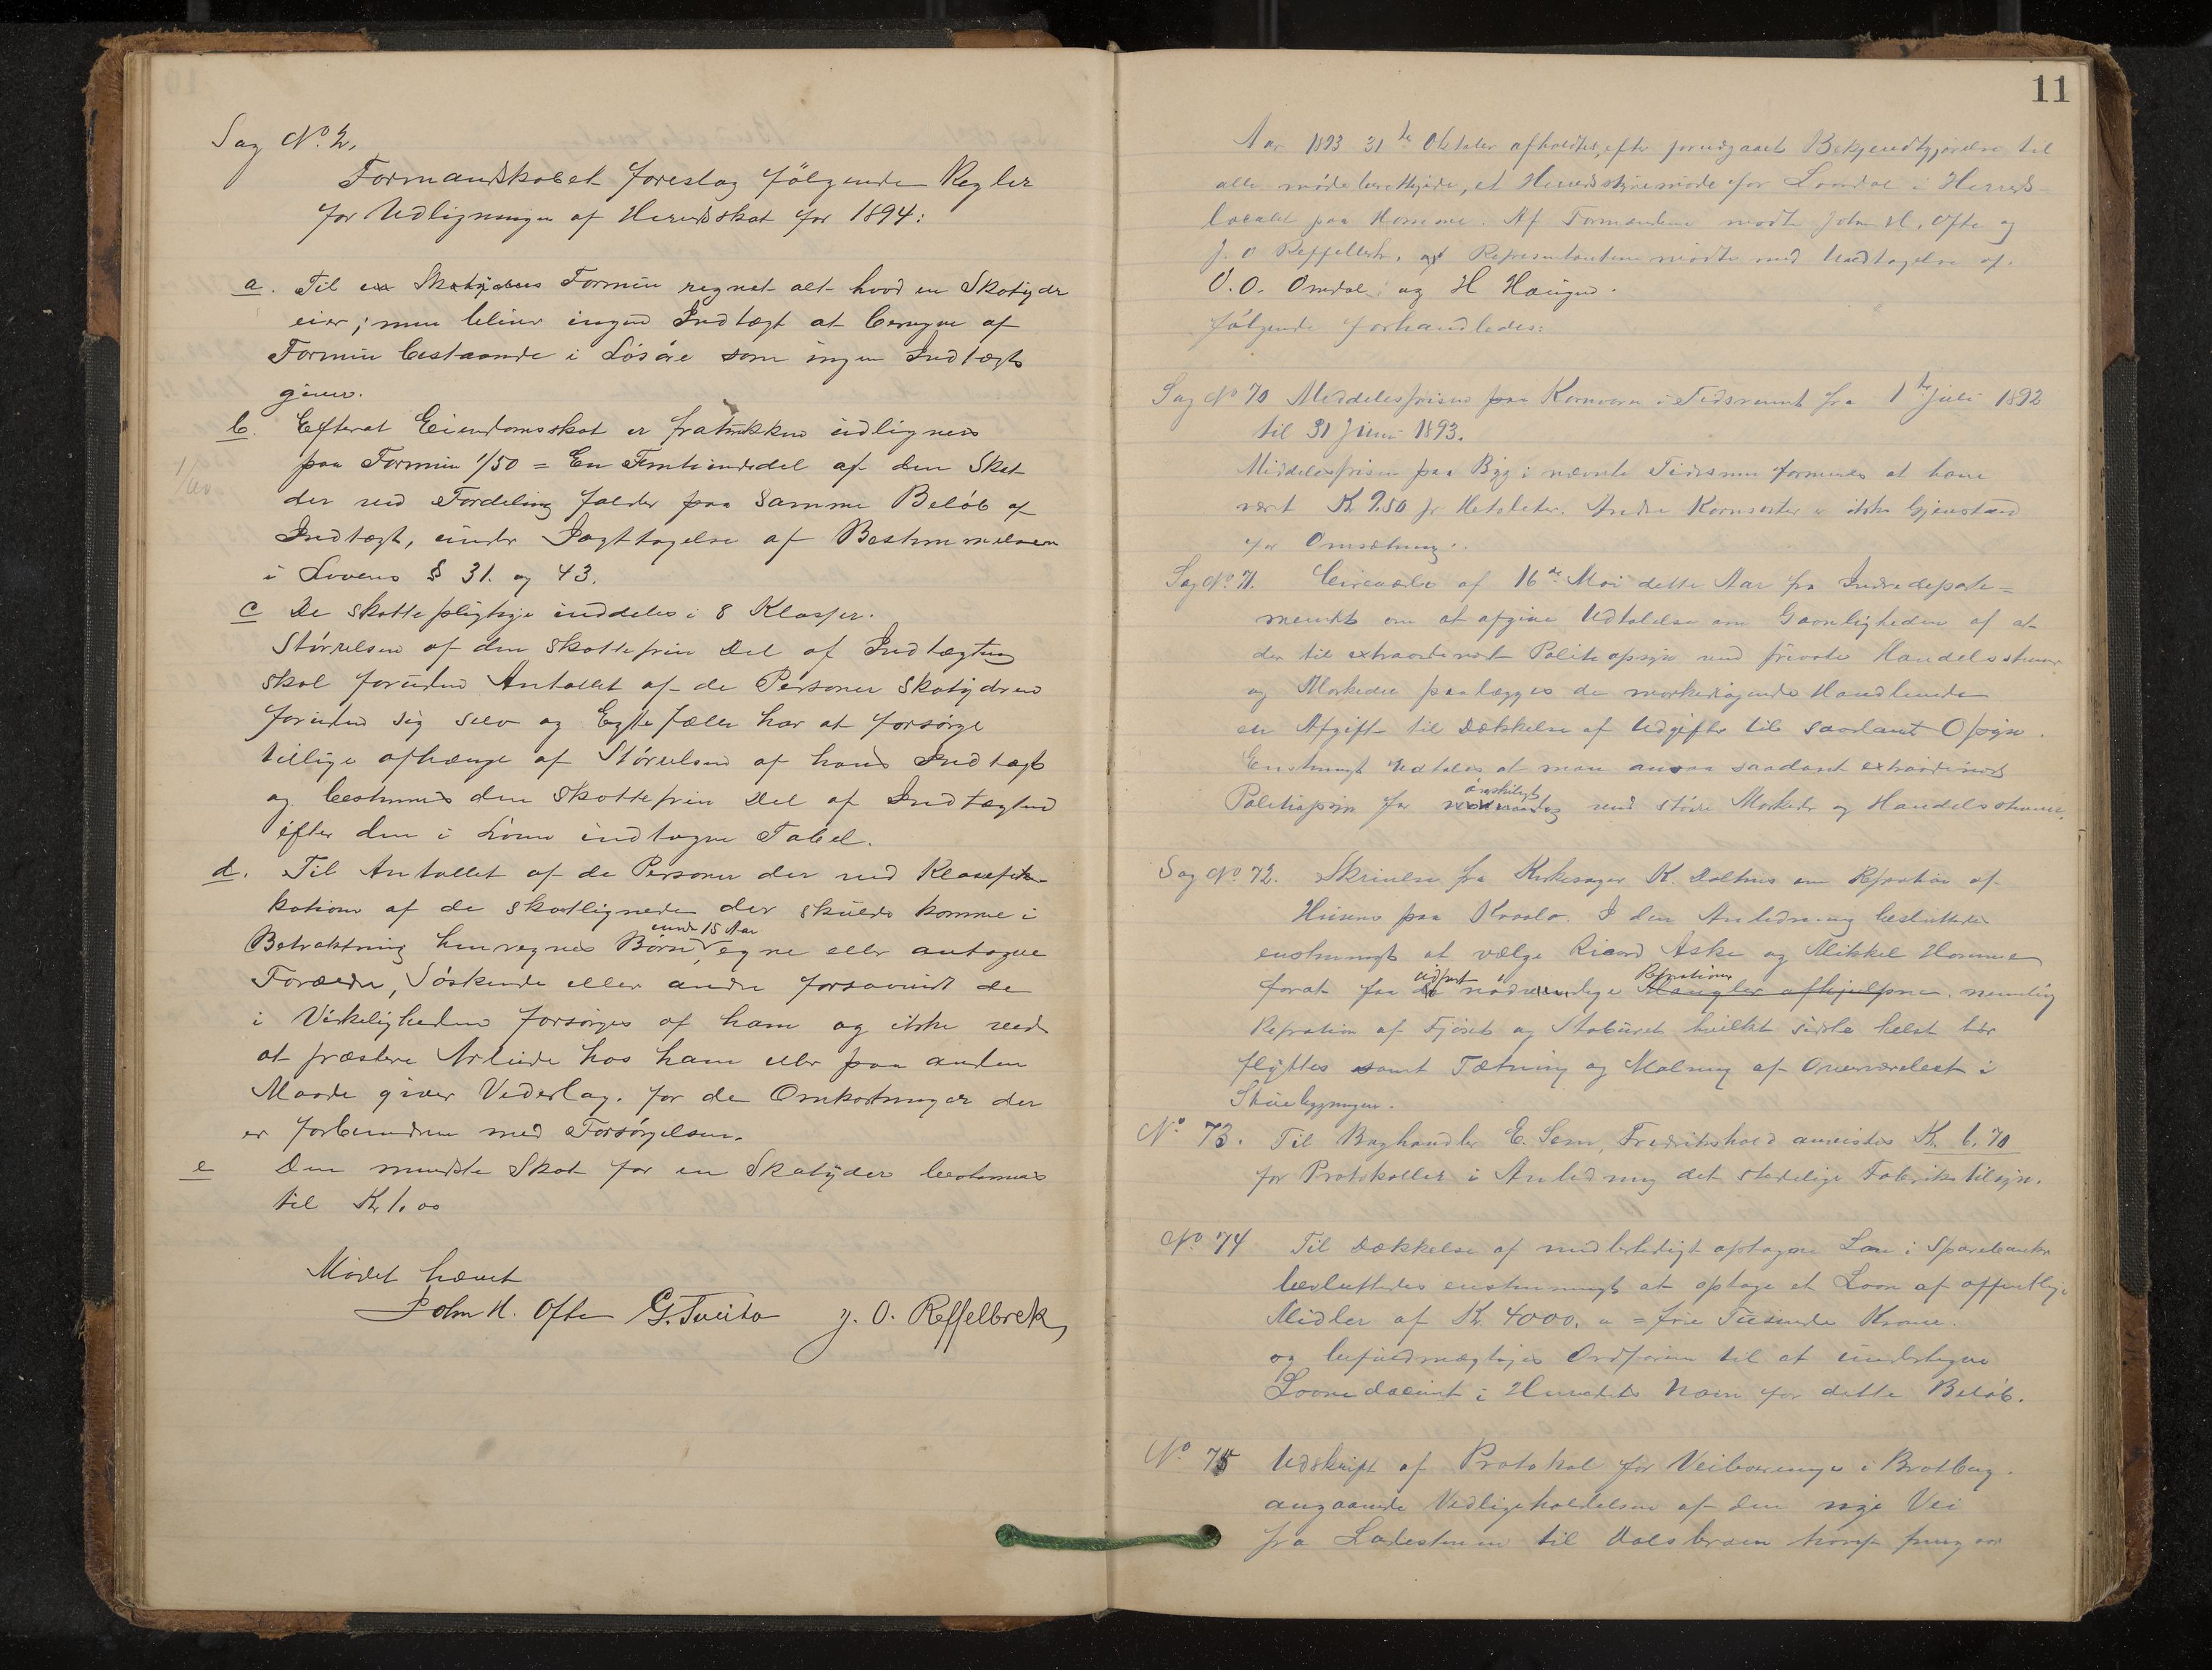 Sag No. 2.
Formandskabet foreslog følgende Regler
for Udligningen af Herredsskat for 1894:
a. Til en Skatyders Formue regnes alt hvad en Skatyder
eier; men bliver ingen Indtægt at beregne af
Formue bestaaende i Løsøre som ingen Indtægt
giver.
b. Efterat Eiendomsskat er fratrukken udlignes
paa Formue 1/50 = En Femtiendedel af den Skat
der ved Fordeling falder paa samme Beløb af
Indtægt, under Iagttagelse af Bestemmelsen
i Lovens § 31. og 43.
c De skattepligtige inddeles i 8 Klasser.
Størrelsen af den skattefrie Del af Indtægten
skal foruden Antallet af de Personer Skatyderen
foruden sig selv og Egtefælle har at forsørge
tillige afhænge af Størrelsen af hans Indtægt
og bestemmes den skattefrie Del af Indtægten
efter den i Loven indtagne Tabel.
d. Til Antallet af de Personer der ved Klassifi-
kation af de skatlignede der skulde komme i
Betraktning henregnes Børn under 15 Aar, egne eller antagne
Forældre, Søskende eller andre forsaavidt de
i Virkeligheden forsørges af ham og ikke ved
at præstere Arbeide hos ham eller paa anden
Maade giver Vederlag. for de Omkostninger der
er forbundne med Forsørgelsen.
e Den mindste Skat for en Skatyder bestemmes
til Kr 1.00
Mødet hævet
John H. Ofte G. Tveito J. O. Reffelbrek
11
Aar 1893 31te Oktober afholdtes, efter forudgaaet Bekjendtgjørelse til
alle mødeberettigede, et Herredsstyremøde for Laardal i Herreds-
localet paa Homme. Af Formændene mødte John H. Ofte og
J. O Reffelbrek, af Repræsentanterne mødte med Undtagelse af.
O. O. Omdal og H Haugen.
følgende forhandledes:
Sag No 70 Middelsprisen paa Kornvarer i Tidsrummet fra 1te Juli 1892
til 31 Juni 1893.
Middelsprisen paa Byg i nævnte Tidsrum formenes at have
vært Kr 9.50 pr Hektoliter. Andre Kornsorter er ikke Gjenstand
for Omsætning.
Sag No. 71. Circulære af 16de Mai dette Aar fra Indredeparte=
mentet om at afgive Udtalelse om Gavnligheden af at
der til extraordinært Politiopsyn ved private Handelsstævner
og Markeder paalægges de markedsøgende Handlende
en Afgift til Dækkelse af Udgifter til saadant Opsyn.
Enstemmigt udtales at man ansaa saadant extraordinært
Politiopsyn for ønskeligt ved større Markeder og Handelsstævner.
Sag No. 72. Skrivelse fra Kirkesanger K. Dalhus om Repration af
Husene paa Kraalo. I den Anledning besluttedes
enstemmigt at vælge Ricard Aske og Mikkel Homme
forat faa udført nødvendige Reprationer Mangler afhjulpne. nemlig
Repration af Fjøset og Staburet hvilket sidste helst bør
flyttes samt Tætning og Malning af Overværelset i
Stuebygningen.
No. 73. Til Boghandler E. Sem, Fredrikshald anvistes Kr. 6.70
for Protokoller i Anledning det stedelige Fabriks tilsyn.
No. 74 Til Dækkelse af midlertidigt optagne Laan i Sparebanken
besluttedes enstemmigt at optage et Laan af offentlige
Midler af Kr. 4000. = fire Tusinde Kroner.
og befuldmægtiges Ordføreren til at undertegne
Laanedocument i Herredets Navn for dette Beløb.
No 75 Udskrift af Protokol for Veibefaringen i Bratsberg.
angaaende Vedligeholdelsen af den nye Vei
fra Ladestenen til Dalsbraen